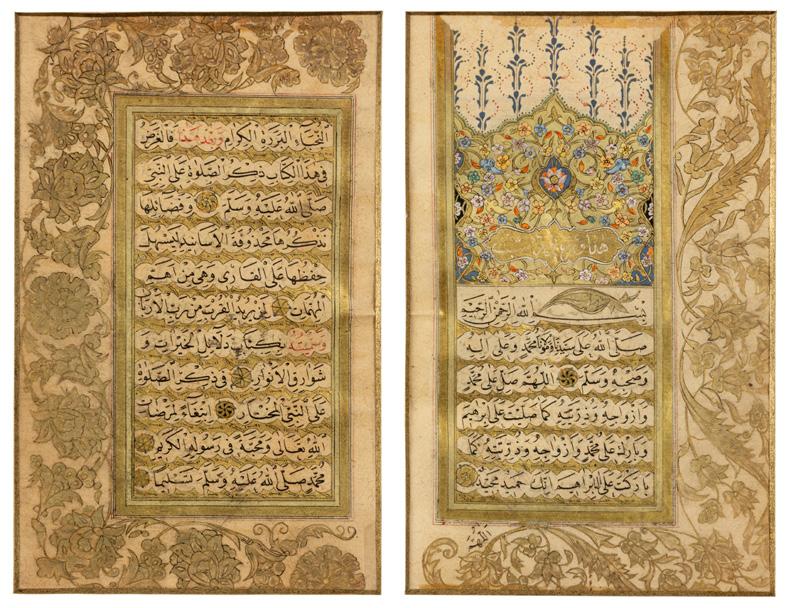 بسم الله الرحمن الرحيم
صلى الله على سيدنا ومولانا محمد وعلى اله
وصحبه وسلم اللهم صل على محمد
وازواجه وذريته كما صليت على ابرهيم
وبارك على محمد وازواجه وذريته كما
باركت على ال ابراهيم انك حميد مجيد
اللهم
النجباء البررة الكرام وبعد هذا فالغرض
في هذا الكتاب ذكر الصلوة على النبي
صلى الله عليه وسلم وفضائلها
نذكرها محذوفة الأسانيد ليسهل
حفظها على القارئ وهي من اهم
المهمات لمن يريد القرب من رب الارباب
وسميته بكتاب دلائل الخيرات و
شوارق الانوار في ذكر الصلوة
على النبي المختار ابتغاء لمرضات
الله تعالى ومحبة في رسوله الكريم
محمد صلى الله عليه وسلم تسليما